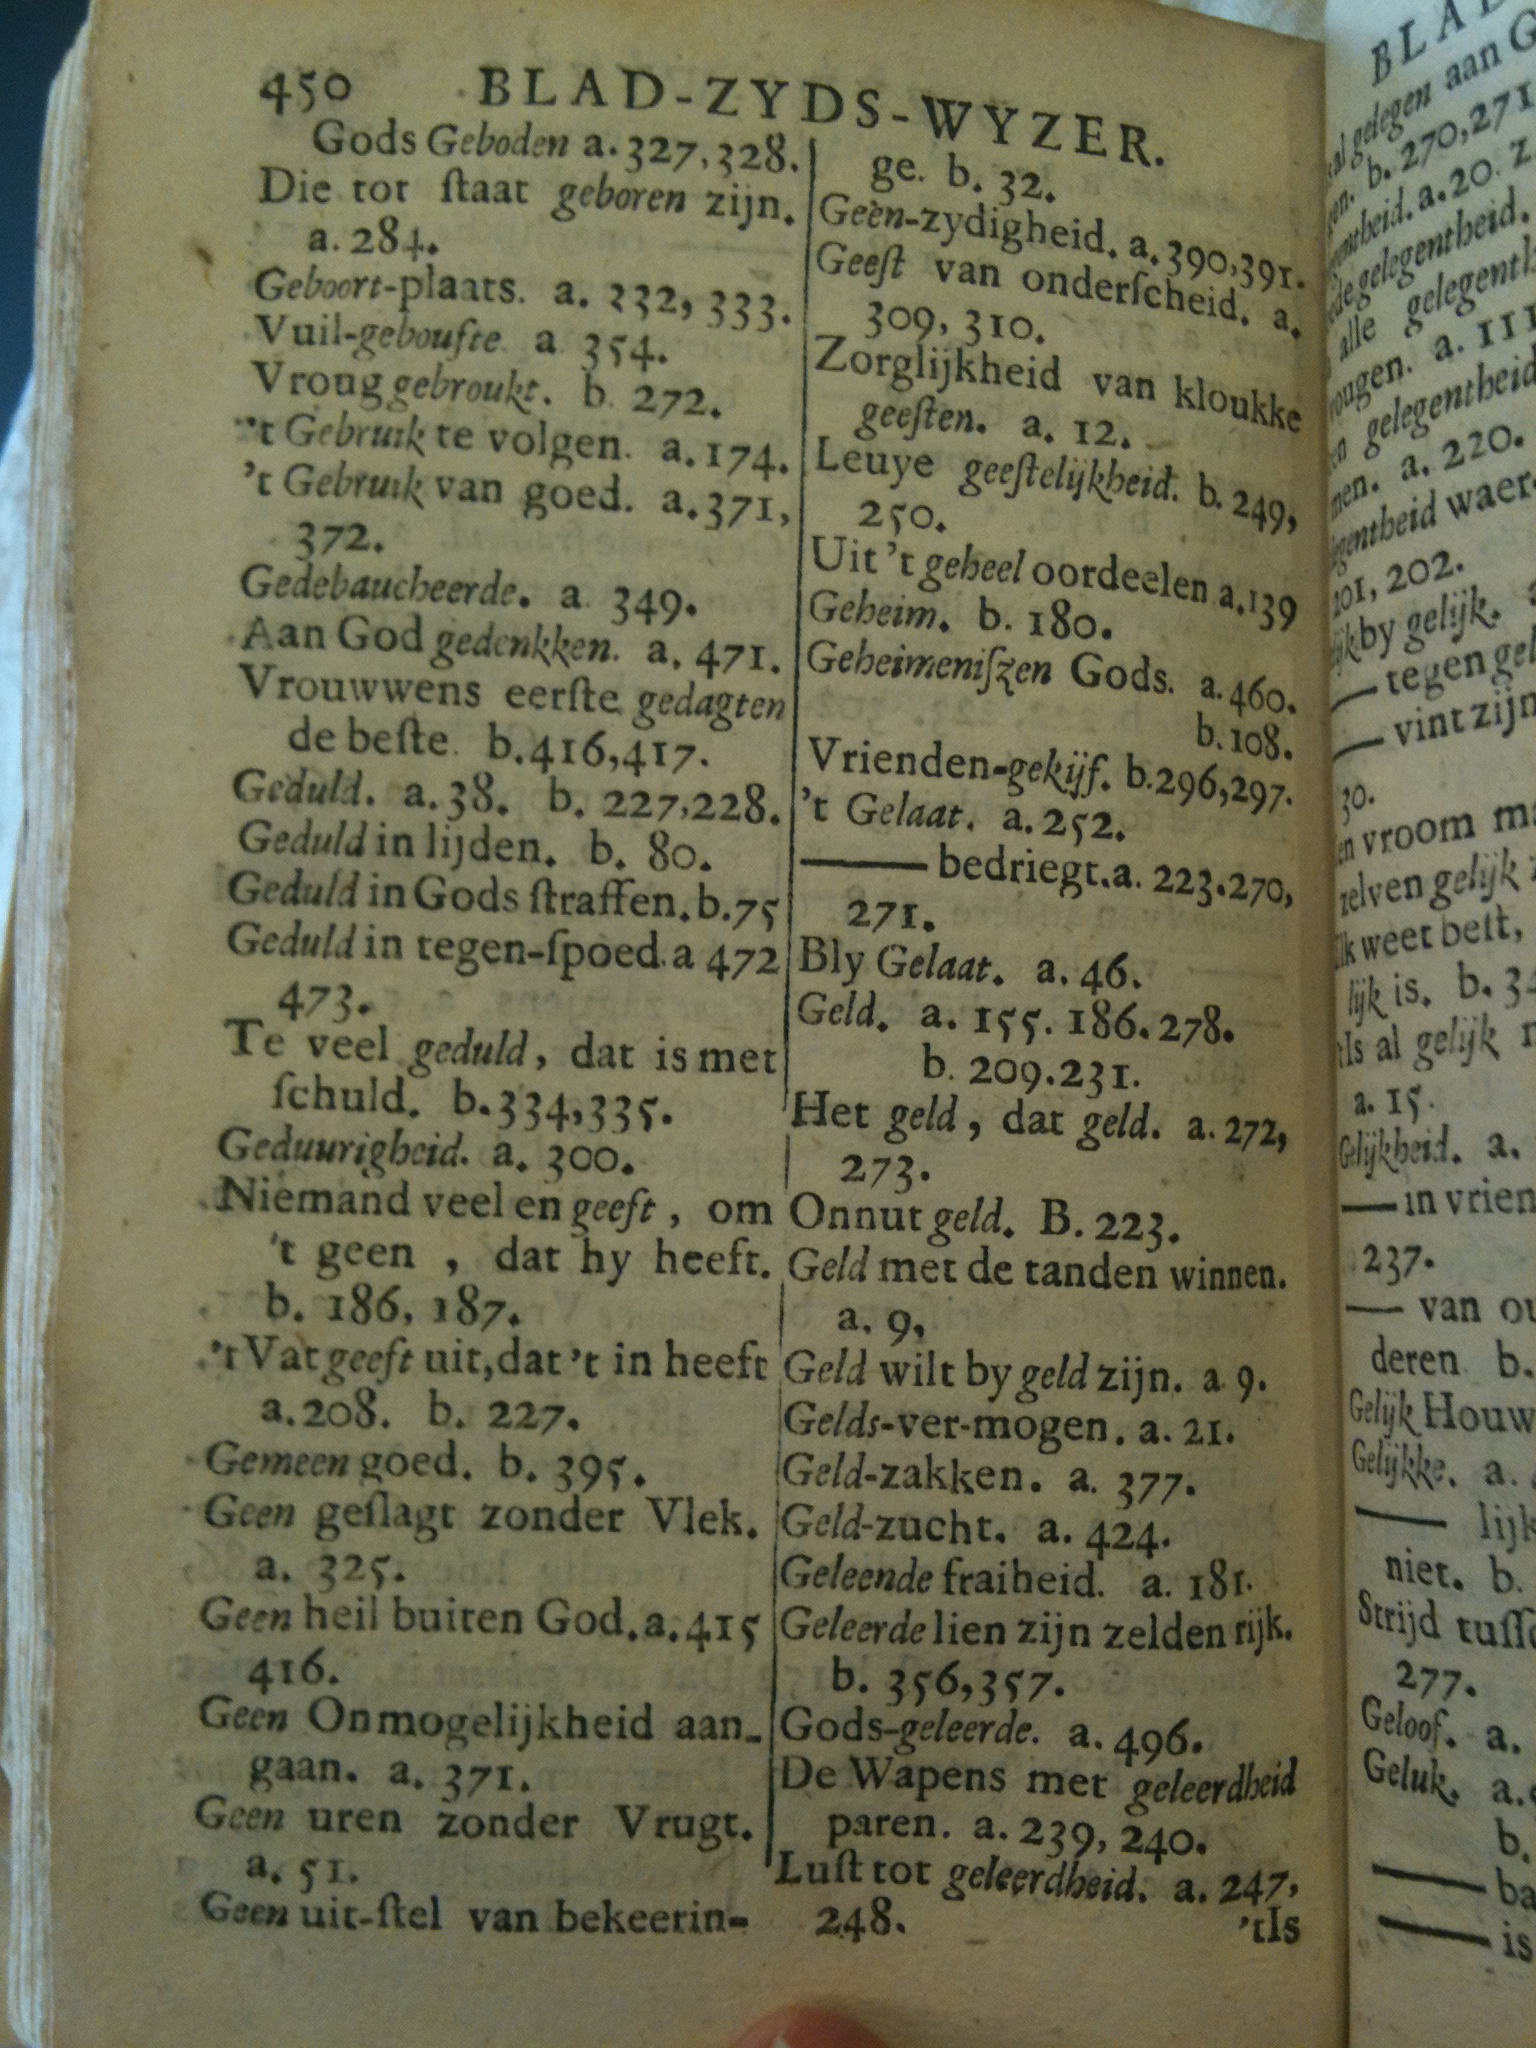 450 BLAD-ZYDS-WYZER.
Gods Geboden a. 327, 328.
Die tot ſtaat geboren zijn.
a. 284.
Geboort-plaats. a. 332, 333.
Vuil-gebouſte a 354.
Vroug gebroukt. b. 272.
't Gebruik te volgen. a. 174.
't Gebruik van goed. a. 371,
372.
Gedebaucheerde. a. 349.
Aan God gedenkken. a. 471.
Vrouwwens eerſte gedagten
de beſte. b. 416, 417.
Geduld. a. 38. b. 227, 228.
Geduld in lijden. b. 80.
Geduld in Gods ſtraffen. b. 75
Geduld in tegen-ſpoed. a 472
473.
Te veel geduld, dat is met
ſchuld. b. 334, 335.
Geduurigheid. a. 300.
Niemand veel en geeft, om
't geen, dat hy heeft.
b. 186, 187.
't Vat geeft uit, dat 't in heeft
a. 208. b. 227.
Gemeen goed. b. 395.
Geen geſlagt zonder Vlek.
a. 325.
Geen heil buiten God. a. 415
416.
Geen Onmogelijkheid aan-
gaan. a. 371.
Geen uren zonder Vrugt.
a. 51.
Geen uit-ſtel van bekeerin-
ge. b. 32.
Geên-zydigheid. a. 390, 391.
Geeſt van onderſcheid. a.
309, 310.
Zorglijkheid van kloukke
geeſten. a. 12.
Leuye geeſtelijkheid. b. 249,
250.
Uit 't geheel oordeelen a. 139
Geheim. b. 180.
Geheimeniſzen Gods. a. 460.
b. 108.
Vrienden-gekijf. b. 296, 297.
't Gelaat. a. 252.
—— bedriegt. a. 223. 270,
271.
Bly Gelaat. a. 46.
Geld. a. 155. 186. 278.
b. 209. 231.
Het geld, dat geld. a. 272,
273.
Onnut geld. B. 223.
Geld met de tanden winnen.
a. 9,
Geld wilt by geld zijn. a 9.
Gelds-ver-mogen. a. 21.
Geld-zakken. a. 377.
Geld-zucht. a. 424.
Geleende fraiheid. a. 181.
Geleerde lien zijn zelden rijk.
b. 356, 357.
Gods-geleerde. a. 496.
De Wapens met geleerdheid
paren. a. 239, 240.
Luſt tot geleerdheid. a. 247,
248.
'tIs
gelegen aan
b. 270, 271
a. 20.
gelegentheid.
alle
a. 111
gelegentheid
a. 220.
waer-
201, 202.
by gelijk.
— tegen
— vint zijn
30.
vroom
zelven gelijk
weet beſt,
lijk is. b.
Is al gelijk
a. 15.
Gelijkheid. a.
— in vrien
237.
— van
deren b.
Gelijk Houw
Gelijkke. a.
— lijk
niet. b.
Strijd
277.
Geloof. a.
Geluk. a.
b.
— ba
— is